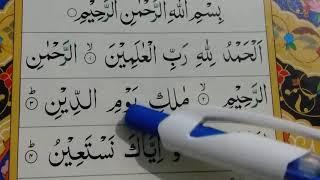 بِسْمِ اللهِ الرَّحْمٰنِ الرَّحِيْمِ
اَلْحَمْدُ لِلّٰهِ رَبِّ الْعٰلَمِيْنَ ۙ﴿۱﴾ الرَّحْمٰنِ
الرَّحِيْمِ ۙ﴿۲﴾ مٰلِكِ يَوْمِ الدِّيْنِ ؕ﴿۳﴾
وَ اِيَّاكَ نَسْتَعِيْنُ ؕ﴿۴﴾